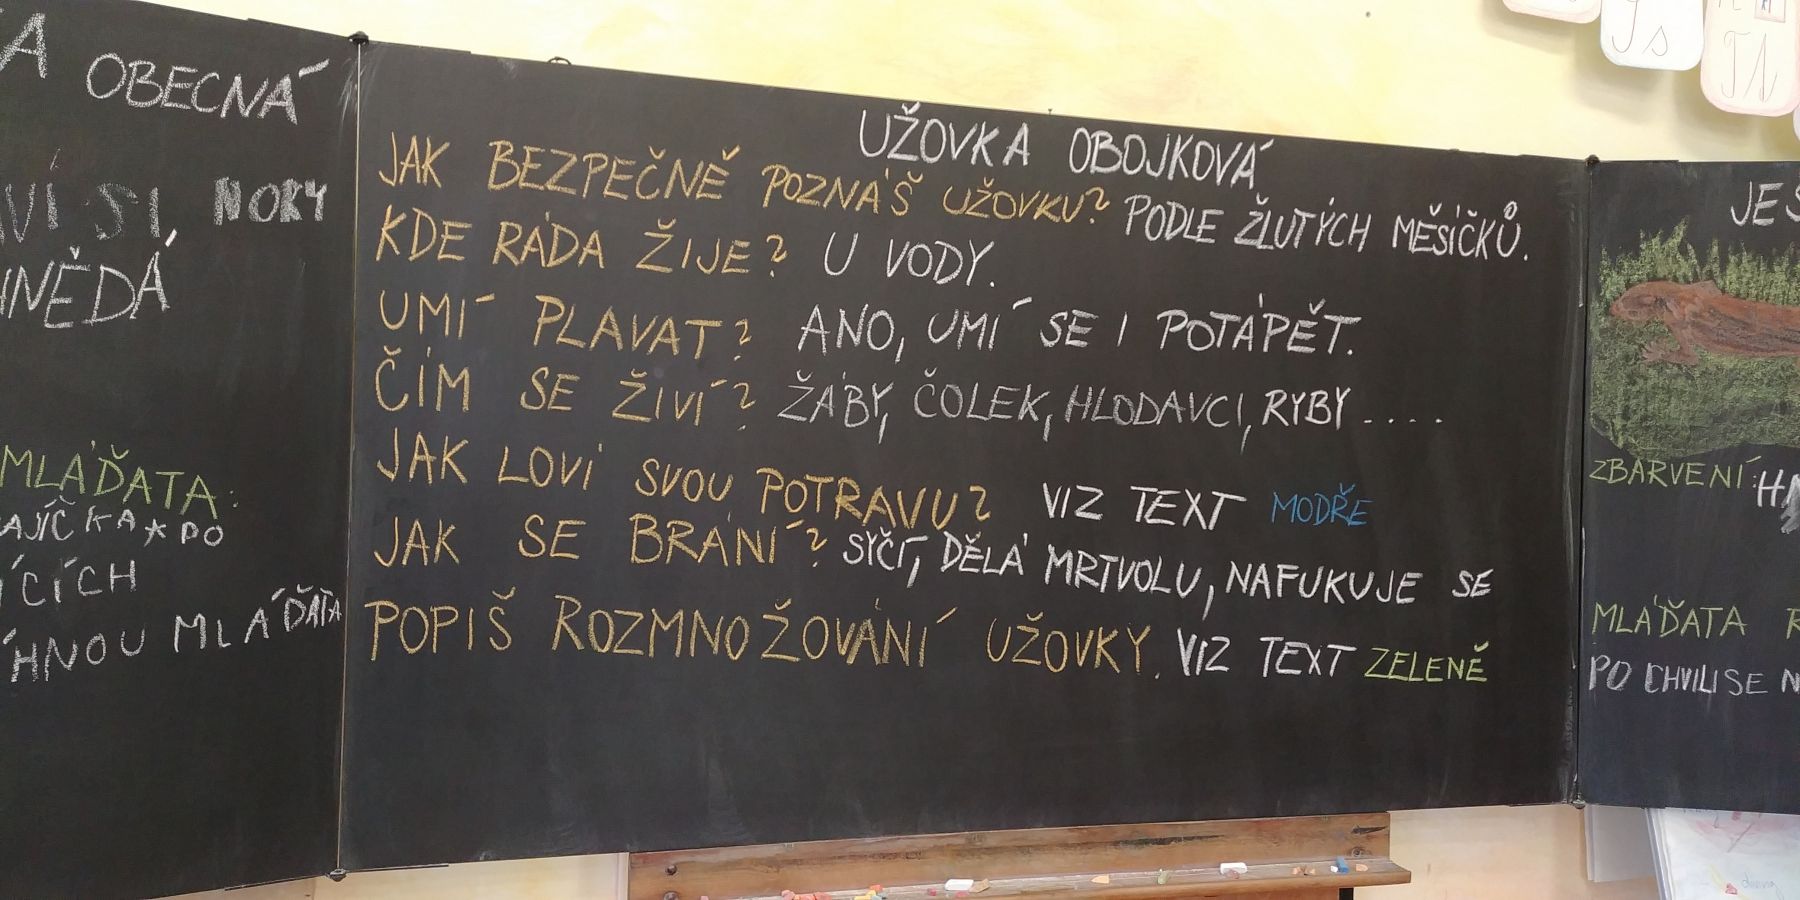 A OBECNÁ
VÍ SI NORY
HNĚDÁ
MLÁĎATA:
AJÍČKA * PO
ÍCÍCH
ÁHNOU MLÁĎATA
UŽOVKA OBOJKOVÁ
JAK BEZPEČNĚ POZNÁŠ UŽOVKU? PODLE ŽLUTÝCH MĚSÍČKŮ.
KDE RÁDA ŽIJE? U VODY.
UMÍ PLAVAT? ANO, UMÍ SE I POTÁPĚT.
ČÍM SE ŽIVÍ? ŽÁBY, ČOLEK, HLODAVCI, RYBY ....
JAK LOVÍ SVOU POTRAVU? VIZ TEXT MODŘE
JAK SE BRÁNÍ? SYČÍ, DĚLÁ MRTVOLU, NAFUKUJE SE
POPIŠ ROZMNOŽOVÁNÍ UŽOVKY. VIZ TEXT ZELENĚ
JES
ZBARVENÍ: HN
MLÁĎATA R
PO CHVILI SE N